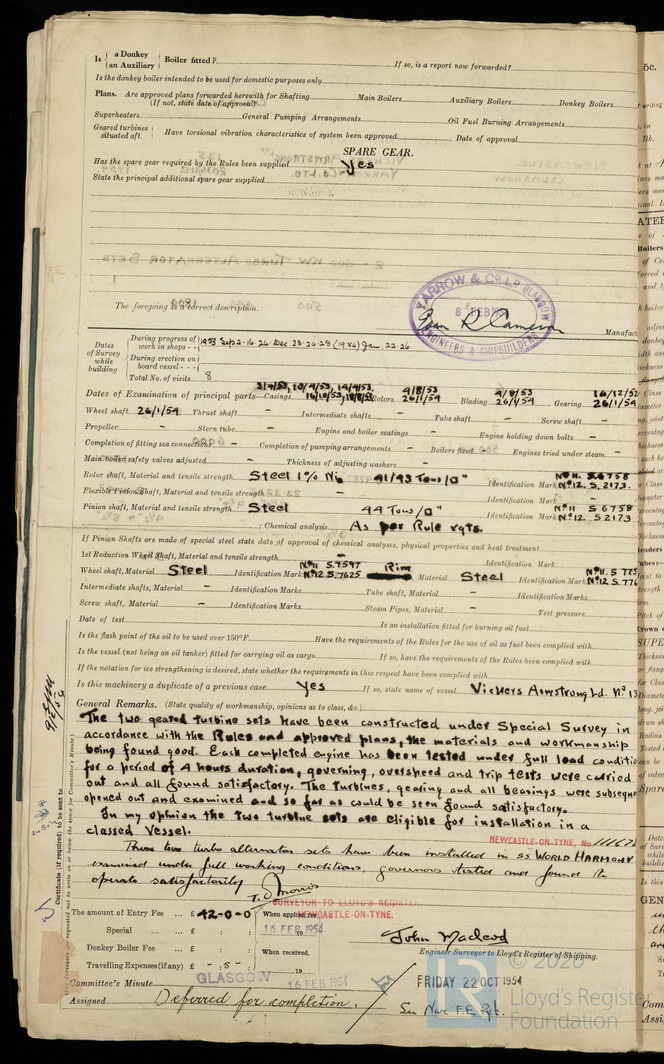 Is a Donkey
an Auxiliary
Boiler fitted?
If so, is a report now forwarded?
Is the donkey boiler intended to be used for domestic purposes only
Plans. Are approved plans forwarded herewith for Shafting
(If not, state date of approval)
Main Boilers
Auxiliary Boilers
Donkey Boilers
Superheaters
General Pumping Arrangements
Oil Fuel Burning Arrangements
Geared turbines
situated aft.
Have torsional vibration characteristics of system been approved
Date of approval
SPARE GEAR.
Has the spare gear required by the Rules been supplied yes
State the principal additional spare gear supplied
The foregoing is a correct description.
YARROW & CO. LD. GLASGOW
ENGINEERS & SHIPBUILDERS
Manufac
Dates
of Survey
while
building
During progress of
work in shops
1953 Sep 2. 16. 24. Dec. 23. 24. 28 (1954) Jan. 22. 26
During erection on
board vessel
Total No. of visits 8
Dates of Examination of principal parts—Casings
Rotors 4/8/53 26/1/54
Blading 4/8/53 26/1/54
Gearing 16/12/52 26/1/54
Wheel shaft 26/1/54 Thrust shaft - Intermediate shafts - Tube shaft - Screw shaft -
Propeller - Stern tube - Engine and boiler seatings - Engine holding down bolts -
Completion of fitting sea connections - Completion of pumping arrangements - Boilers fixed - Engines tried under steam -
Main boiler safety valves adjusted - Thickness of adjusting washers -
Rotor shaft, Material and tensile strength Steel 1% Ni 41/43 Tons/□" Identification Mark Nº 11. S.6758
Nº 12. S.2173.
Flexible Pinion Shaft, Material and tensile strength - Identification Mark -
Pinion shaft, Material and tensile strength Steel 44 Tons/□" Identification Mark Nº 11 S 6758
Nº 12. S 2173
; Chemical analysis As per Rule rqts.
If Pinion Shafts are made of special steel state date of approval of chemical analyses, physical properties and heat treatment
1st Reduction Wheel Shaft, Material and tensile strength -
Wheel shaft, Material Steel Identification Mark Nº 11 S.7597
Nº 12 S.7625
Rim Material Steel Identification Mark Nº 11. S 775
Nº 12 S.776
Intermediate shafts, Material - Identification Marks - Tube shaft, Material - Identification Marks -
Screw shaft, Material - Identification Marks - Steam Pipes, Material - Test pressure
Date of test Is an installation fitted for burning oil fuel
Is the flash point of the oil to be used over 150°F. Have the requirements of the Rules for the use of oil as fuel been complied with
Is the vessel (not being an oil tanker) fitted for carrying oil as cargo If so, have the requirements of the Rules been complied with
If the notation for ice strengthening is desired, state whether the requirements in this respect have been complied with
Is this machinery a duplicate of a previous case yes If so, state name of vessel Vickers Armstrong Ld. Nº 13
General Remarks. (State quality of workmanship, opinions as to class, &c.)
The two geared turbine sets have been constructed under Special Survey in
accordance with the Rules and approved plans, the materials and workmanship
being found good. Each completed engine has been tested under full load conditio
for a period of 4 hours duration, governing, overspeed and trip tests were carried
out and all found satisfactory. The turbines, gearing and all bearings were subseque
opened out and examined and so far as could be seen found satisfactory.
In my opinion the two turbine sets are eligible for installation in a
classed Vessel.
NEWCASTLE-ON-TYNE, No
These two turbo alternator sets have been installed in SS WORLD HARMONY
examined under full working conditions, governors tested and found to
operate satisfactorily
T. D. Morris
SURVEYOR TO LLOYD'S REGISTER
NEWCASTLE-ON-TYNE.
Certificate (if required) to be sent to
The amount of Entry Fee .. £ 42-0-0
Special ... £ : :
Donkey Boiler Fee ... £ : :
Travelling Expenses (if any) £ - : 5 - :
When applied for
16 FEB 1954
When received,
19
John Macleod
Engineer Surveyor to Lloyd's Register of Shipping.
Committee's Minute GLASGOW 16 FEB 1954
FRIDAY 22 OCT 1954
Assigned Deferred for completion.
See Nwc F.E. Rpt.
© 2020
LR
Lloyd's Register
Foundation